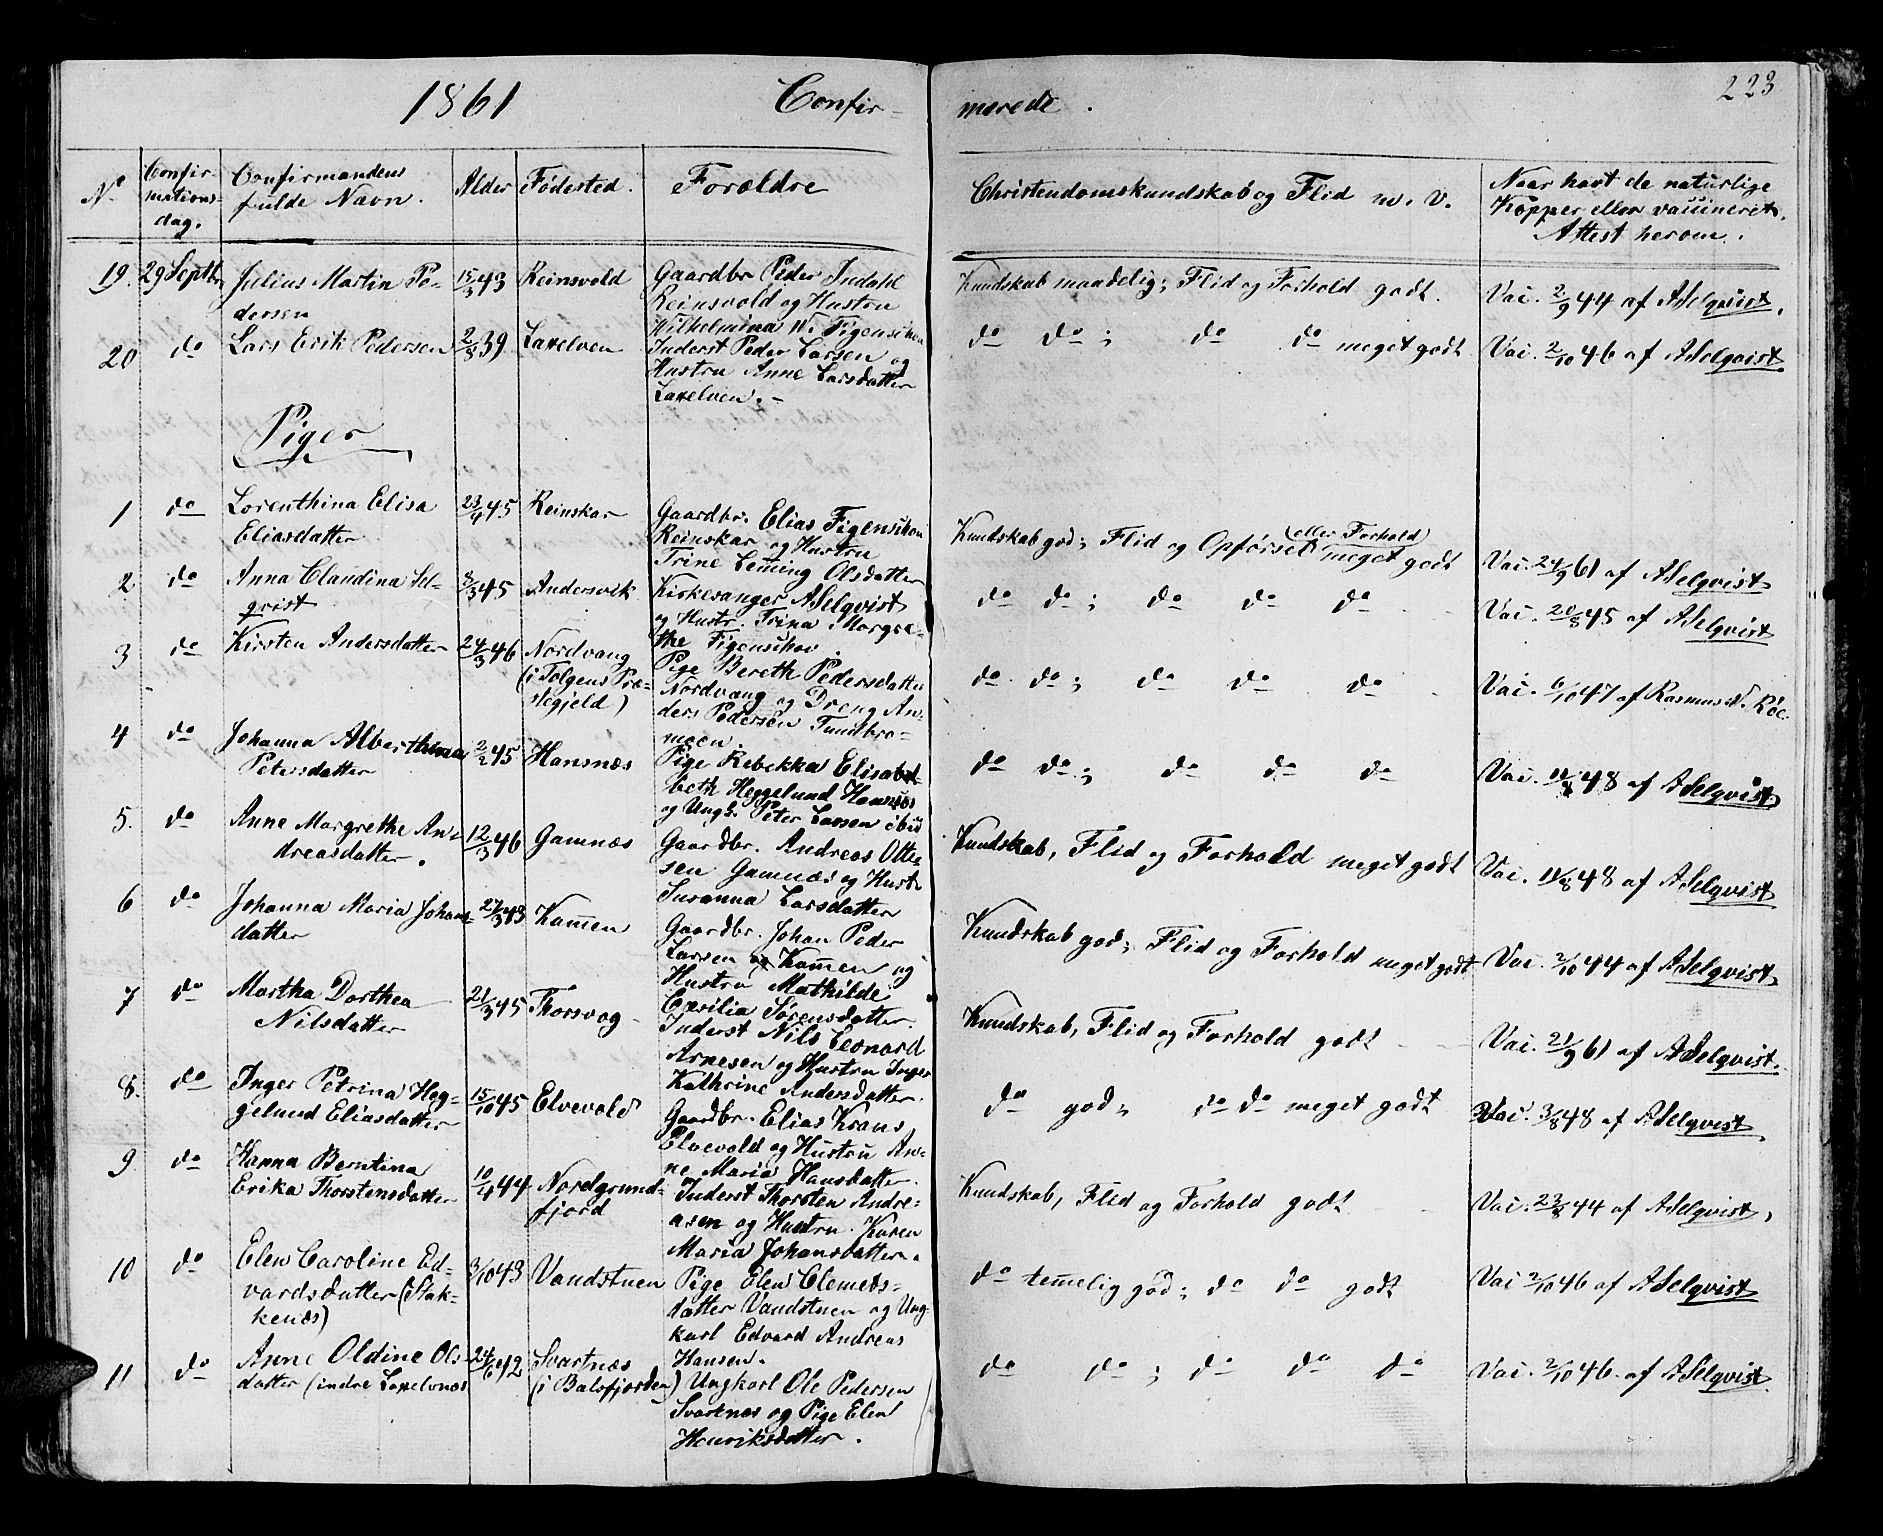 1861 Confir-
merede.
223
No
Confir-
mations-
dag.
Confirmandens
fulde Navn.
Alder
Fødested.
Forældre
Christendomskundskab og Flid m. v.
Naar havt de naturlige
Kopper eller vaccineret.
Attest herom.
19. 29 Septb. Julius Martin Pe-
dersen
15/3 43 Reinsvold
Gaardbr Peder Indahl
Reinsvold og Hustru
Wilhelmina W. Figenschou
Kundskab maadelig; Flid og Forhold godt.
Vac. 2/9 44 af ASelqvist.
20 do Lars Erik Pedersen 2/8 39 Laxelven
Inderst Peder Larsen og
Hustru Anne Larsdatter
Laxelven.-
do do; do do meget godt
Vac. 2/10 46 af ASelqvist.
Piger
1 do Lorenthina Elisa
Eliasdatter
23/4 45 Reinskar
Gaardbr. Elias Figenschou
Reinskar og Hustru
Trine Leming Olsdatter
Kundskab god; Flid og Opførsel (eller Forhold) meget godt
Vac. 24/9 61 af ASelqvist
2 do Anna Claudina Sel-
qvist
8/3 45 Andersvik
Kirkesanger ASelqvist
og Hustr. Trina Margre-
the Figenschov.
do do; do do do
Vac. 20/8 45 af ASelqvist
3 do Kirsten Andersdatter 24/3 46 Nordvang
(i Tolgens Præ-
stegjeld)
Pige Bereth Pedersdatter
Nordvang og Dreng An-
ders Pedersen Tundbro-
moen
do do; do do do
Vac. 6/10 47 af Rasmus N. Røe.
4 do Johanna Alberthina
Petersdatter
2/2 45 Hansnæs
Pige Rebekka Elisa
beth Heggelund Hansnæs
og Ungk. Peter Larsen ibid
do do; do do do
Vac. 11/8 48 af ASelqvist
5. do Anne Margrethe An-
dreasdatter.
12/3 46 Gamnæs
Gaardbr. Andreas Otte-
sen Gamnæs og Hustr
Susanna Larsdatter
Kundskab, Flid og Forhold meget godt
Vac. 11/8 48 af ASelqvist
6 do Johanna Maria Johans-
datter
27/3 43 Kamen
Gaardbr. Johan Peder
Larsen Kamen og
Hustru Mathilde
Cæsilia Sørensdatter.
Kundskab god; Flid og Forhold meget godt
Vac. 2/10 44 af ASelqvist
7 do Martha Dorthea
Nilsdatter
21/3 45 Thorsvog
Inderst Nils Leonard
Arnesen og Hustru Inger
Kathrine Andersdatter.
Kundskab, Flid og Forhold godt
Vac. 21/9 61 af ASelqvist.
8. do Inger Petrina Heg-
gelund Eliasdatter
15/10 45 Elvevold
Gaardbr. Elias Krans
Elvevold og Hustru An-
ne Maria Hansdatter.
do god; do do meget godt
Vac. 3/8 48 af ASelqvist.
9 do Hanna Berntina
Erika Thorstensdatter
10/4 44 Nordgrund-
fjord
Inderst Thorsten Andre-
asen og Hustru Karen
Maria Johansdatter.
Kundskab, Flid og Forhold godt
Vac. 23/8 44 af ASelqvist,
10 do Elen Caroline Ed-
vardsdatter (Stak-
kenæs)
3/10 43 Vandstuen
Pige Elen Clemets-
datter Vandstuen og Ung-
karl Edvard Andreas
Hansen.
do temelig god; do do godt
Vac 2/10 46 af ASelqvist
11 do Anne Oldine Ols-
datter (indre Laxelvnæs
24/6 42 Svartnæs
(i Balsfjorden)
Ungkarl Ole Pedersen
Svartnæs og Pige Elen
Henriksdatter.
do do; do do do
Vac. 2/10 46 af ASelqvist